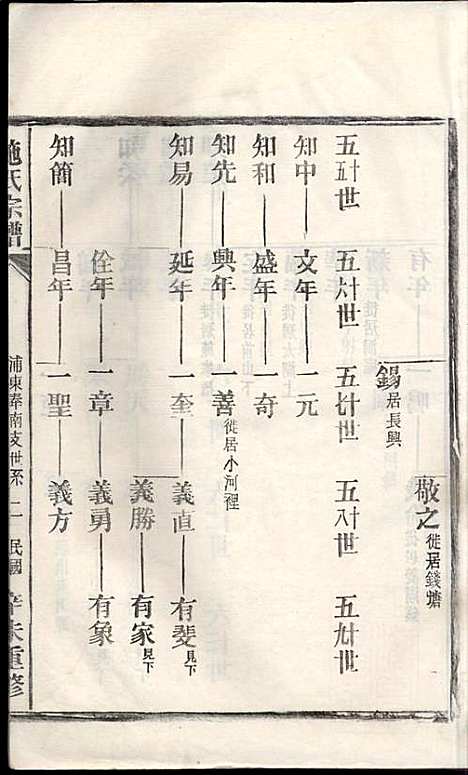 敬之徙居錢塘
錫居長興
五十五世 五十六世 五十七世 五十八世 五十九世
知中 文年 一元
知和 盛年 一奇
知先 興年 一善徙居小河裡
知易 延年 一奎 義直 有斐見下
義勝 有家見下
佺年 一章 義勇 有象
知簡 昌年 一聖 義方
施氏宗譜 浦東奉南支世系 二 民國 辛未重修